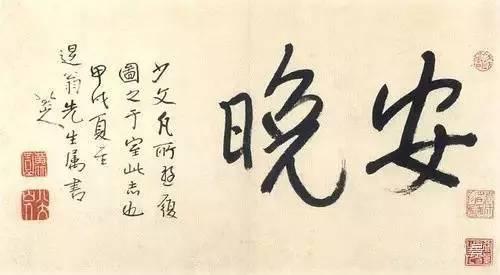 安晚
少文凡所遊履
圖之于室此志也
甲戌夏至
退翁先生属書
八大山人